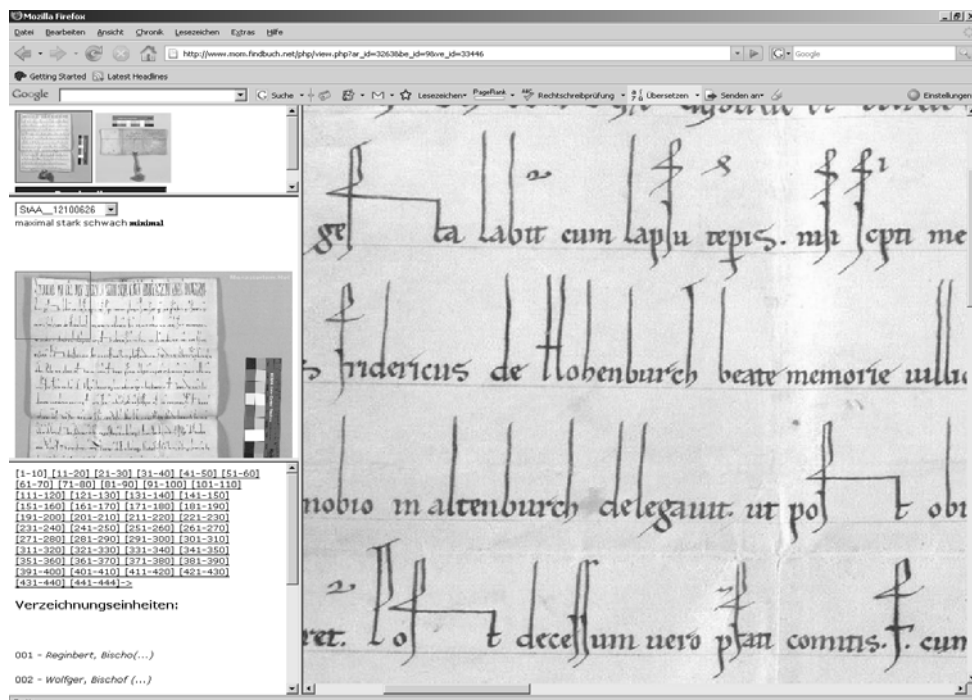 Mozilla Firefox
Datei Bearbeiten Ansicht Chronik Lesezeichen Extras Hilfe
http://www.mom.findbuch.net/php/view.php?ar_id=3263&be_id=9&ve_id=33446
Google
Getting Started Latest Headlines
Google Suche Lesezeichen PageRank Rechtschreibprüfung Übersetzen Senden an Einstellungen
StAA__12100626
maximal stark schwach minimal
[1-10] [11-20] [21-30] [31-40] [41-50] [51-60]
[61-70] [71-80] [81-90] [91-100] [101-110]
[111-120] [121-130] [131-140] [141-150]
[151-160] [161-170] [171-180] [181-190]
[191-200] [201-210] [211-220] [221-230]
[231-240] [241-250] [251-260] [261-270]
[271-280] [281-290] [291-300] [301-310]
[311-320] [321-330] [331-340] [341-350]
[351-360] [361-370] [371-380] [381-390]
[391-400] [401-410] [411-420] [421-430]
[431-440] [441-444]->
Verzeichnungseinheiten:
001 - Reginbert, Bischo(...)
002 - Wolfger, Bischof (...)
ta labit cum lapsu me
fridericus de Hohenburch beate memorie
nobio in altenburch delegauit. ut post obi
decessum uero comitis. cum